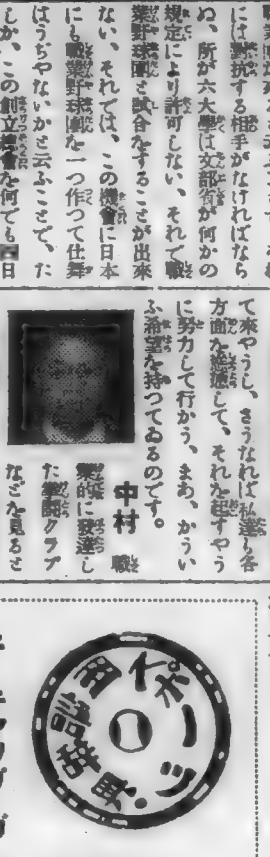 には對抗する相手がなければなら
ぬ、所が六大學は文部省が何かの
規定により許可しない、それで職
業野球團と試合をすることが出來
ない、それでは、この機會に日本
にも職業野球團を一つ作つて仕舞
はうぢやないかと云ふことで、た
しか、この創立總會を何でも 日
て來やうし、さうなれば私達も各
方面を慫慂して、それを起すやう
に努力して行かう、まあ、かうい
ふ希望を持つてゐるのです。
中村 職
業的に發達し
た拳鬪クラブ
などを見ると
スポーツ
用語辭典